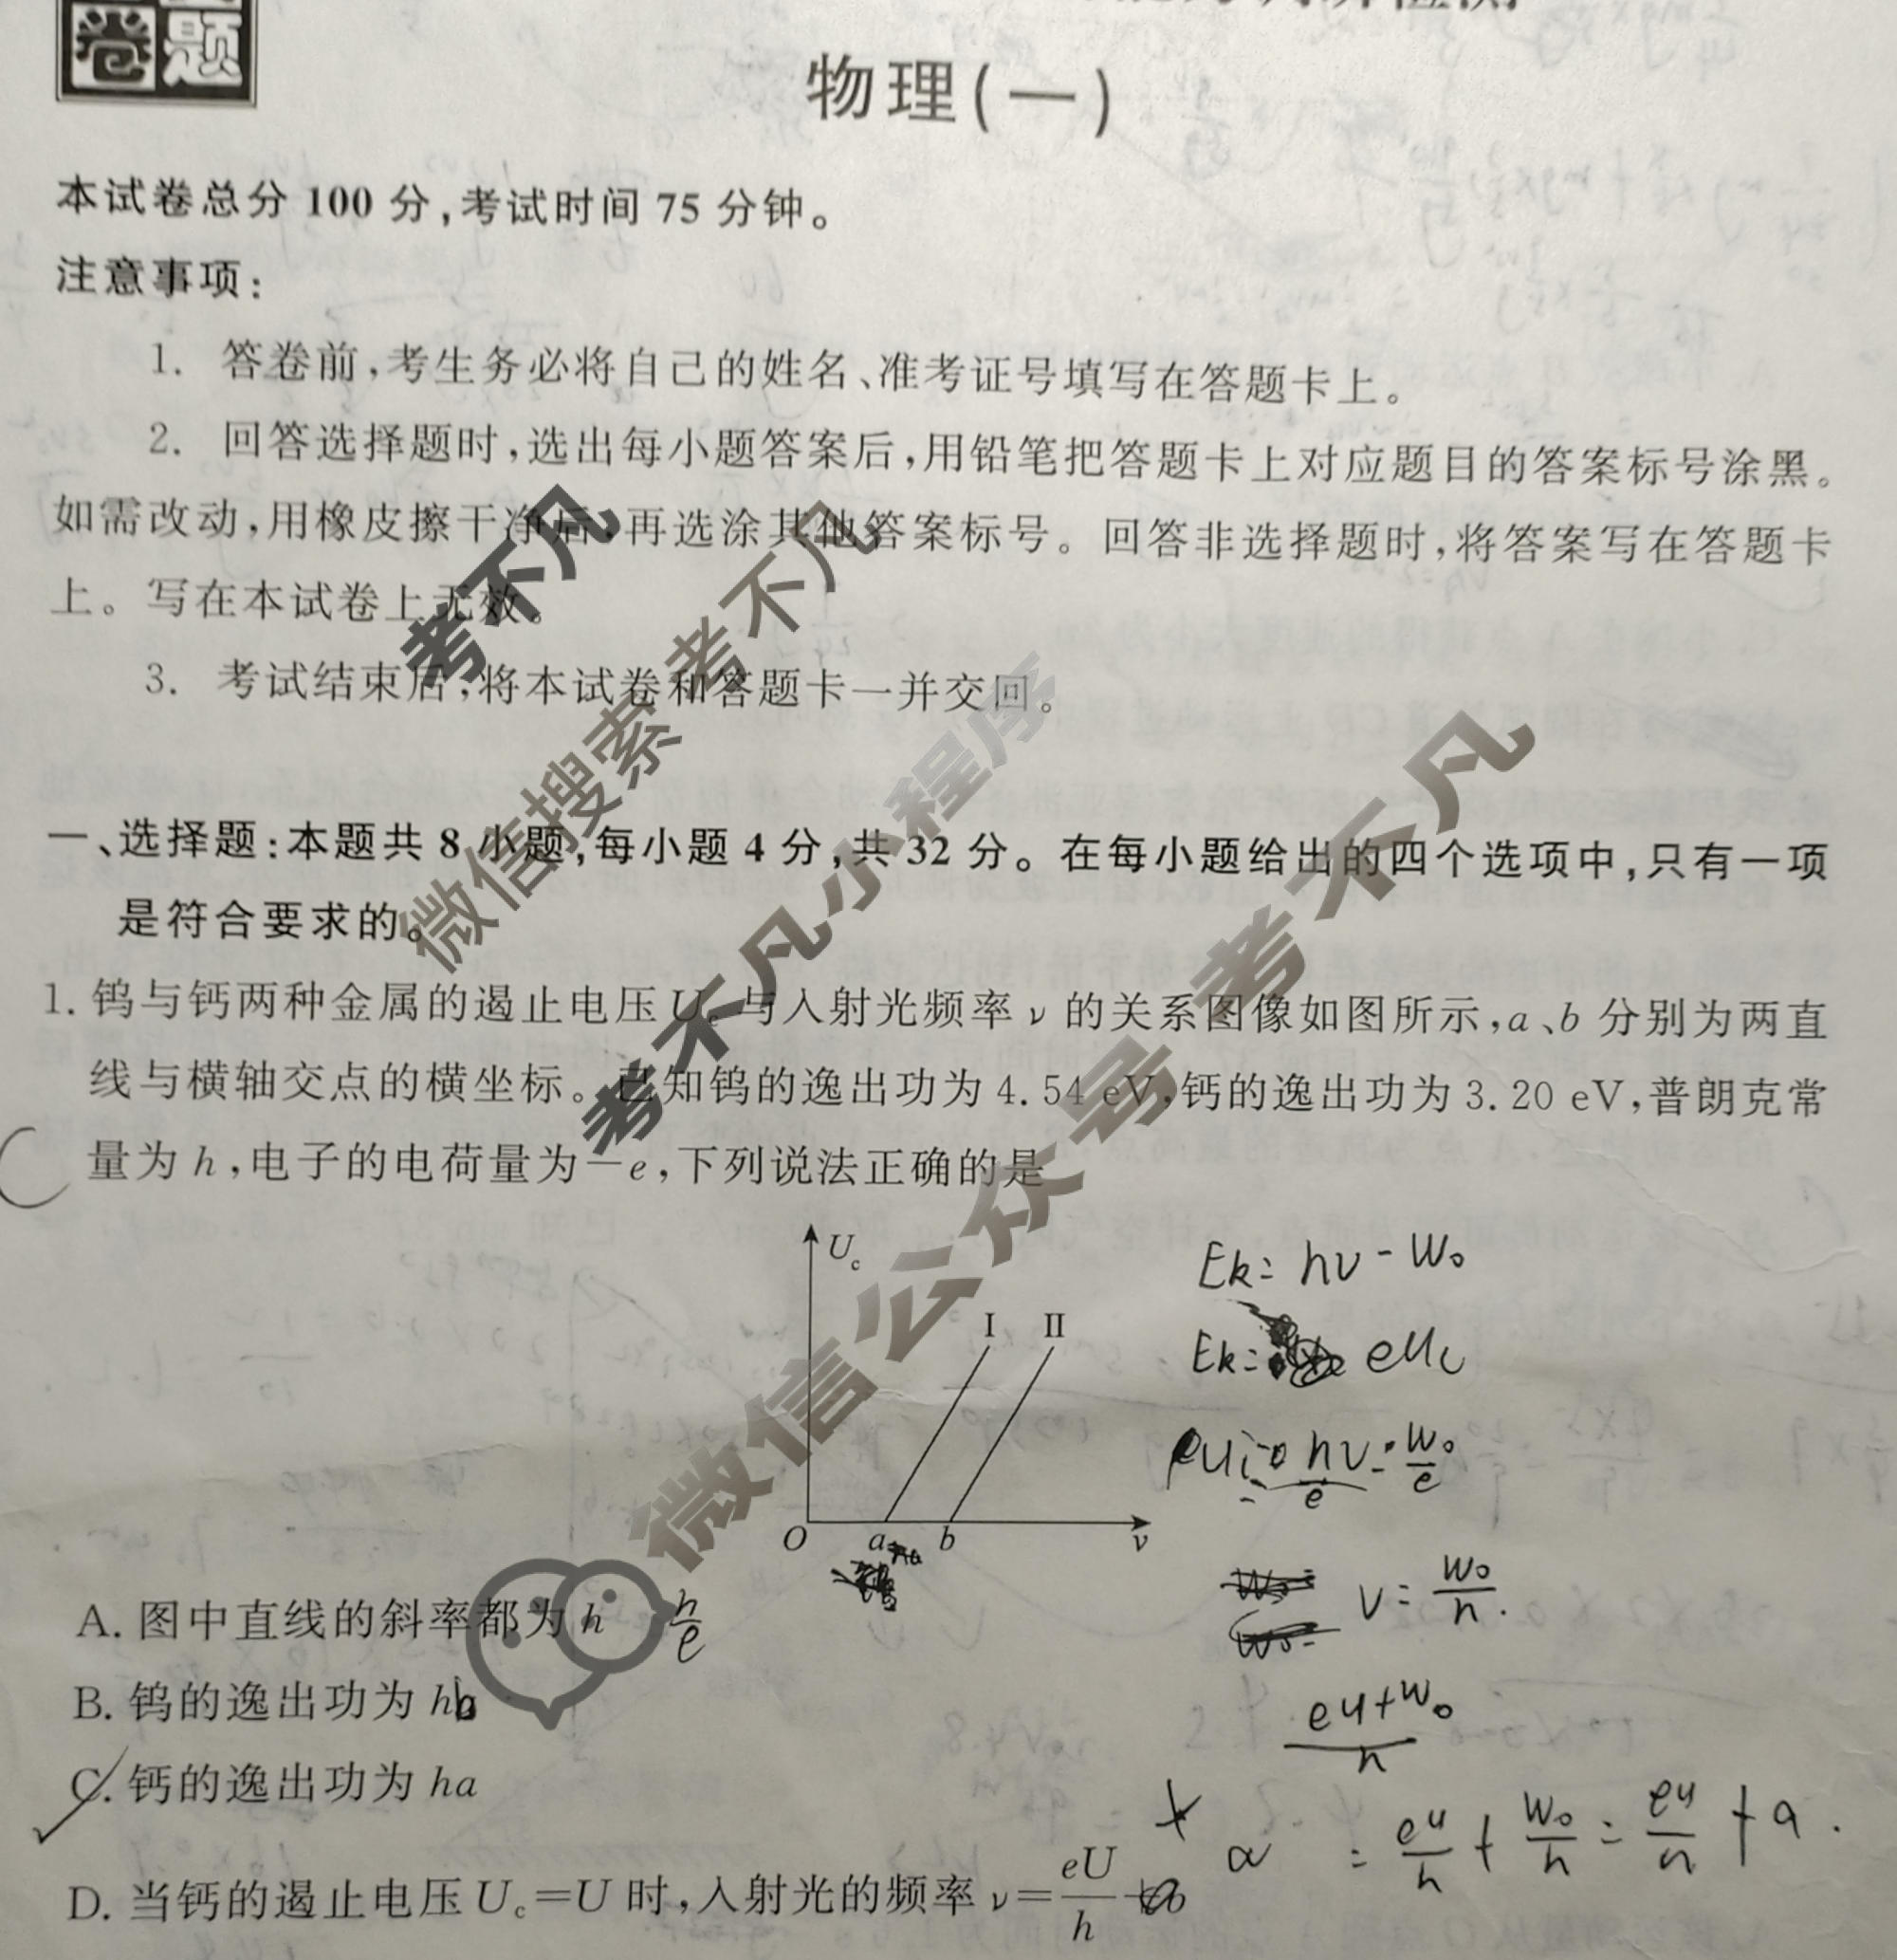 卷题
物理(一)
本试卷总分 100 分,考试时间 75 分钟。
注意事项:
1. 答卷前,考生务必将自己的姓名、准考证号填写在答题卡上。
2. 回答选择题时,选出每小题答案后,用铅笔把答题卡上对应题目的答案标号涂黑。
如需改动,用橡皮擦干净后,再选涂其他答案标号。回答非选择题时,将答案写在答题卡
上。写在本试卷上无效。
3. 考试结束后,将本试卷和答题卡一并交回。
考不凡
微信搜索 考不凡
考不凡小程序
微信公众号 考不凡
一、选择题:本题共 8 小题,每小题 4 分,共 32 分。在每小题给出的四个选项中,只有一项
是符合要求的。
1. 钨与钙两种金属的遏止电压 Uc 与入射光频率 ν 的关系图像如图所示,a、b 分别为两直
线与横轴交点的横坐标。已知钨的逸出功为 4.54 eV,钙的逸出功为 3.20 eV,普朗克常
量为 h,电子的电荷量为 −e,下列说法正确的是
C
Uc
I II
O a b ν
Ek= hν - W0
Ek= eUc
ν = W0/h.
eU+W0/h
= eU/h + W0/h = eU/h + a.
A. 图中直线的斜率都为 h h/e
B. 钨的逸出功为 hb
C. 钙的逸出功为 ha
D. 当钙的遏止电压 Uc=U 时,入射光的频率 ν= eU/h